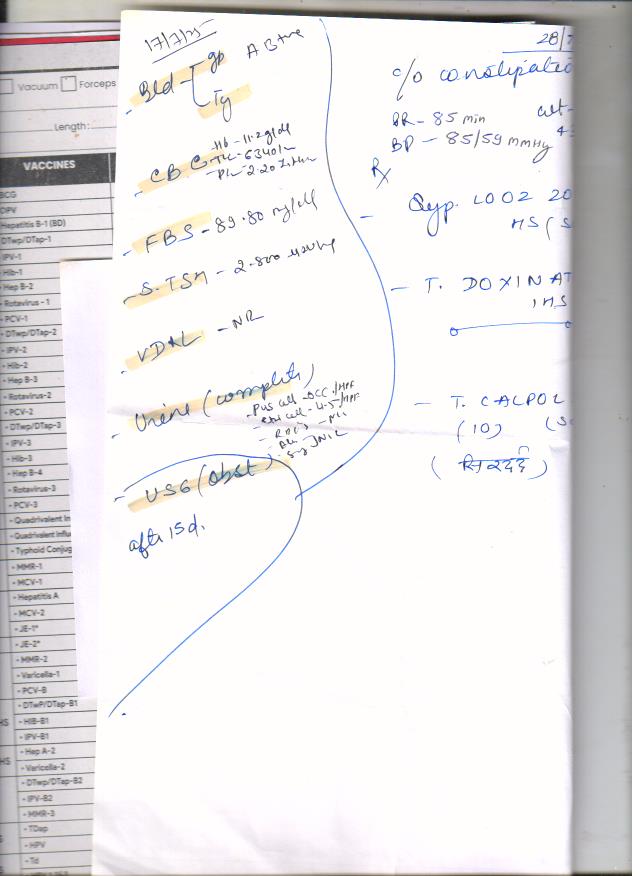 Vacuum Forceps
Length:
VACCINES
BCG
OPV
Hepatitis B-1 (BD)
DTwp/DTap-1
IPV-1
Hib-1
Hep B-2
Rotavirus - 1
PCV-1
DTwp/DTap-2
IPV-2
Hib-2
Hep B-3
Rotavirus-2
PCV-2
DTwp/DTap-3
IPV-3
Hib-3
Hep B-4
Rotavirus-3
PCV-3
Quadrivalent In
Quadrivalent Influ
Typhoid Conjug
MMR-1
MCV-1
Hepatitis A
MCV-2
JE-1*
JE-2*
MMR-2
Varicella-1
PCV-B
DTwP/DTap-B1
HIB-B1
IPV-B1
Hep A-2
Varicella-2
DTwp/DTap-B2
IPV-B2
MMR-3
TDap
HPV
Td
17/7/25
Bld gp AB +ve
Ty
CBC Hb - 11.2 g/dl
TLC - 6340/
Plt - 2.20
FBS - 89.80 mg/dl
S. TSH - 2.800
VDRL - NR
Urine (complete)
Pus cell - OCC./HPF
4-5/HPF
RBC's - Nil
NIL
USG (Obst)
after 15d.
28/7
c/o constipatio
PR - 85 min wt-
BP - 85/59 mmHg
Rx
- Syp. LOOZ 20
HS (S
- T. DOXINAT
1HS
- T. CALPOL
(10) (SO